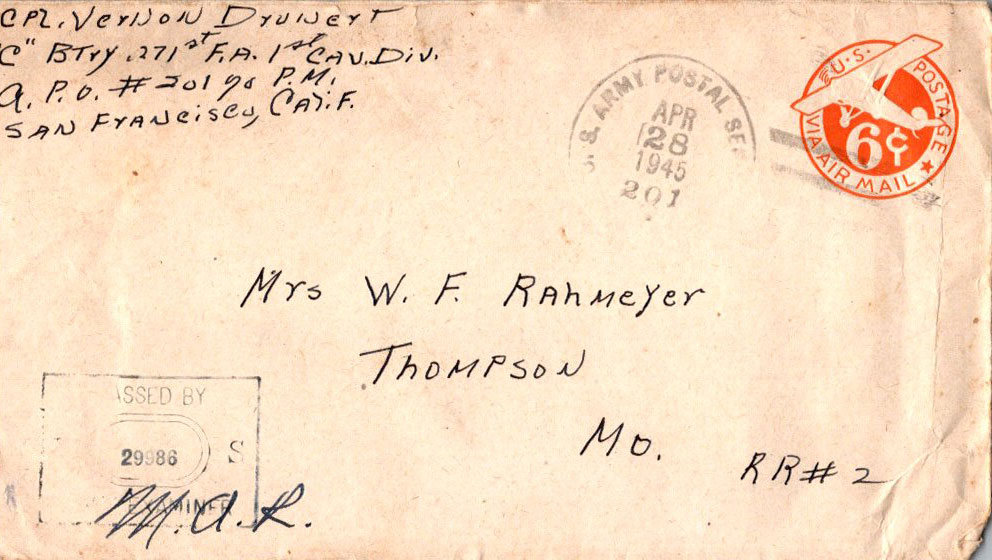 CPL. Vernon Druwert
"C" BTry. 271st F.A. 1st CAV. Div.
A. P. O. # 201 % P.M.
SAN FrANcisco, CALiF.
U.S. ARMY POSTAL SE
APR
28
1945
201
U.S. POSTAGE
6¢
VIA AIR MAIL
Mrs W. F. RAhMeyer
THOMPSON
Mo.
RR# 2
ASSED BY
29986 S
EXAMINER
M.A.R.